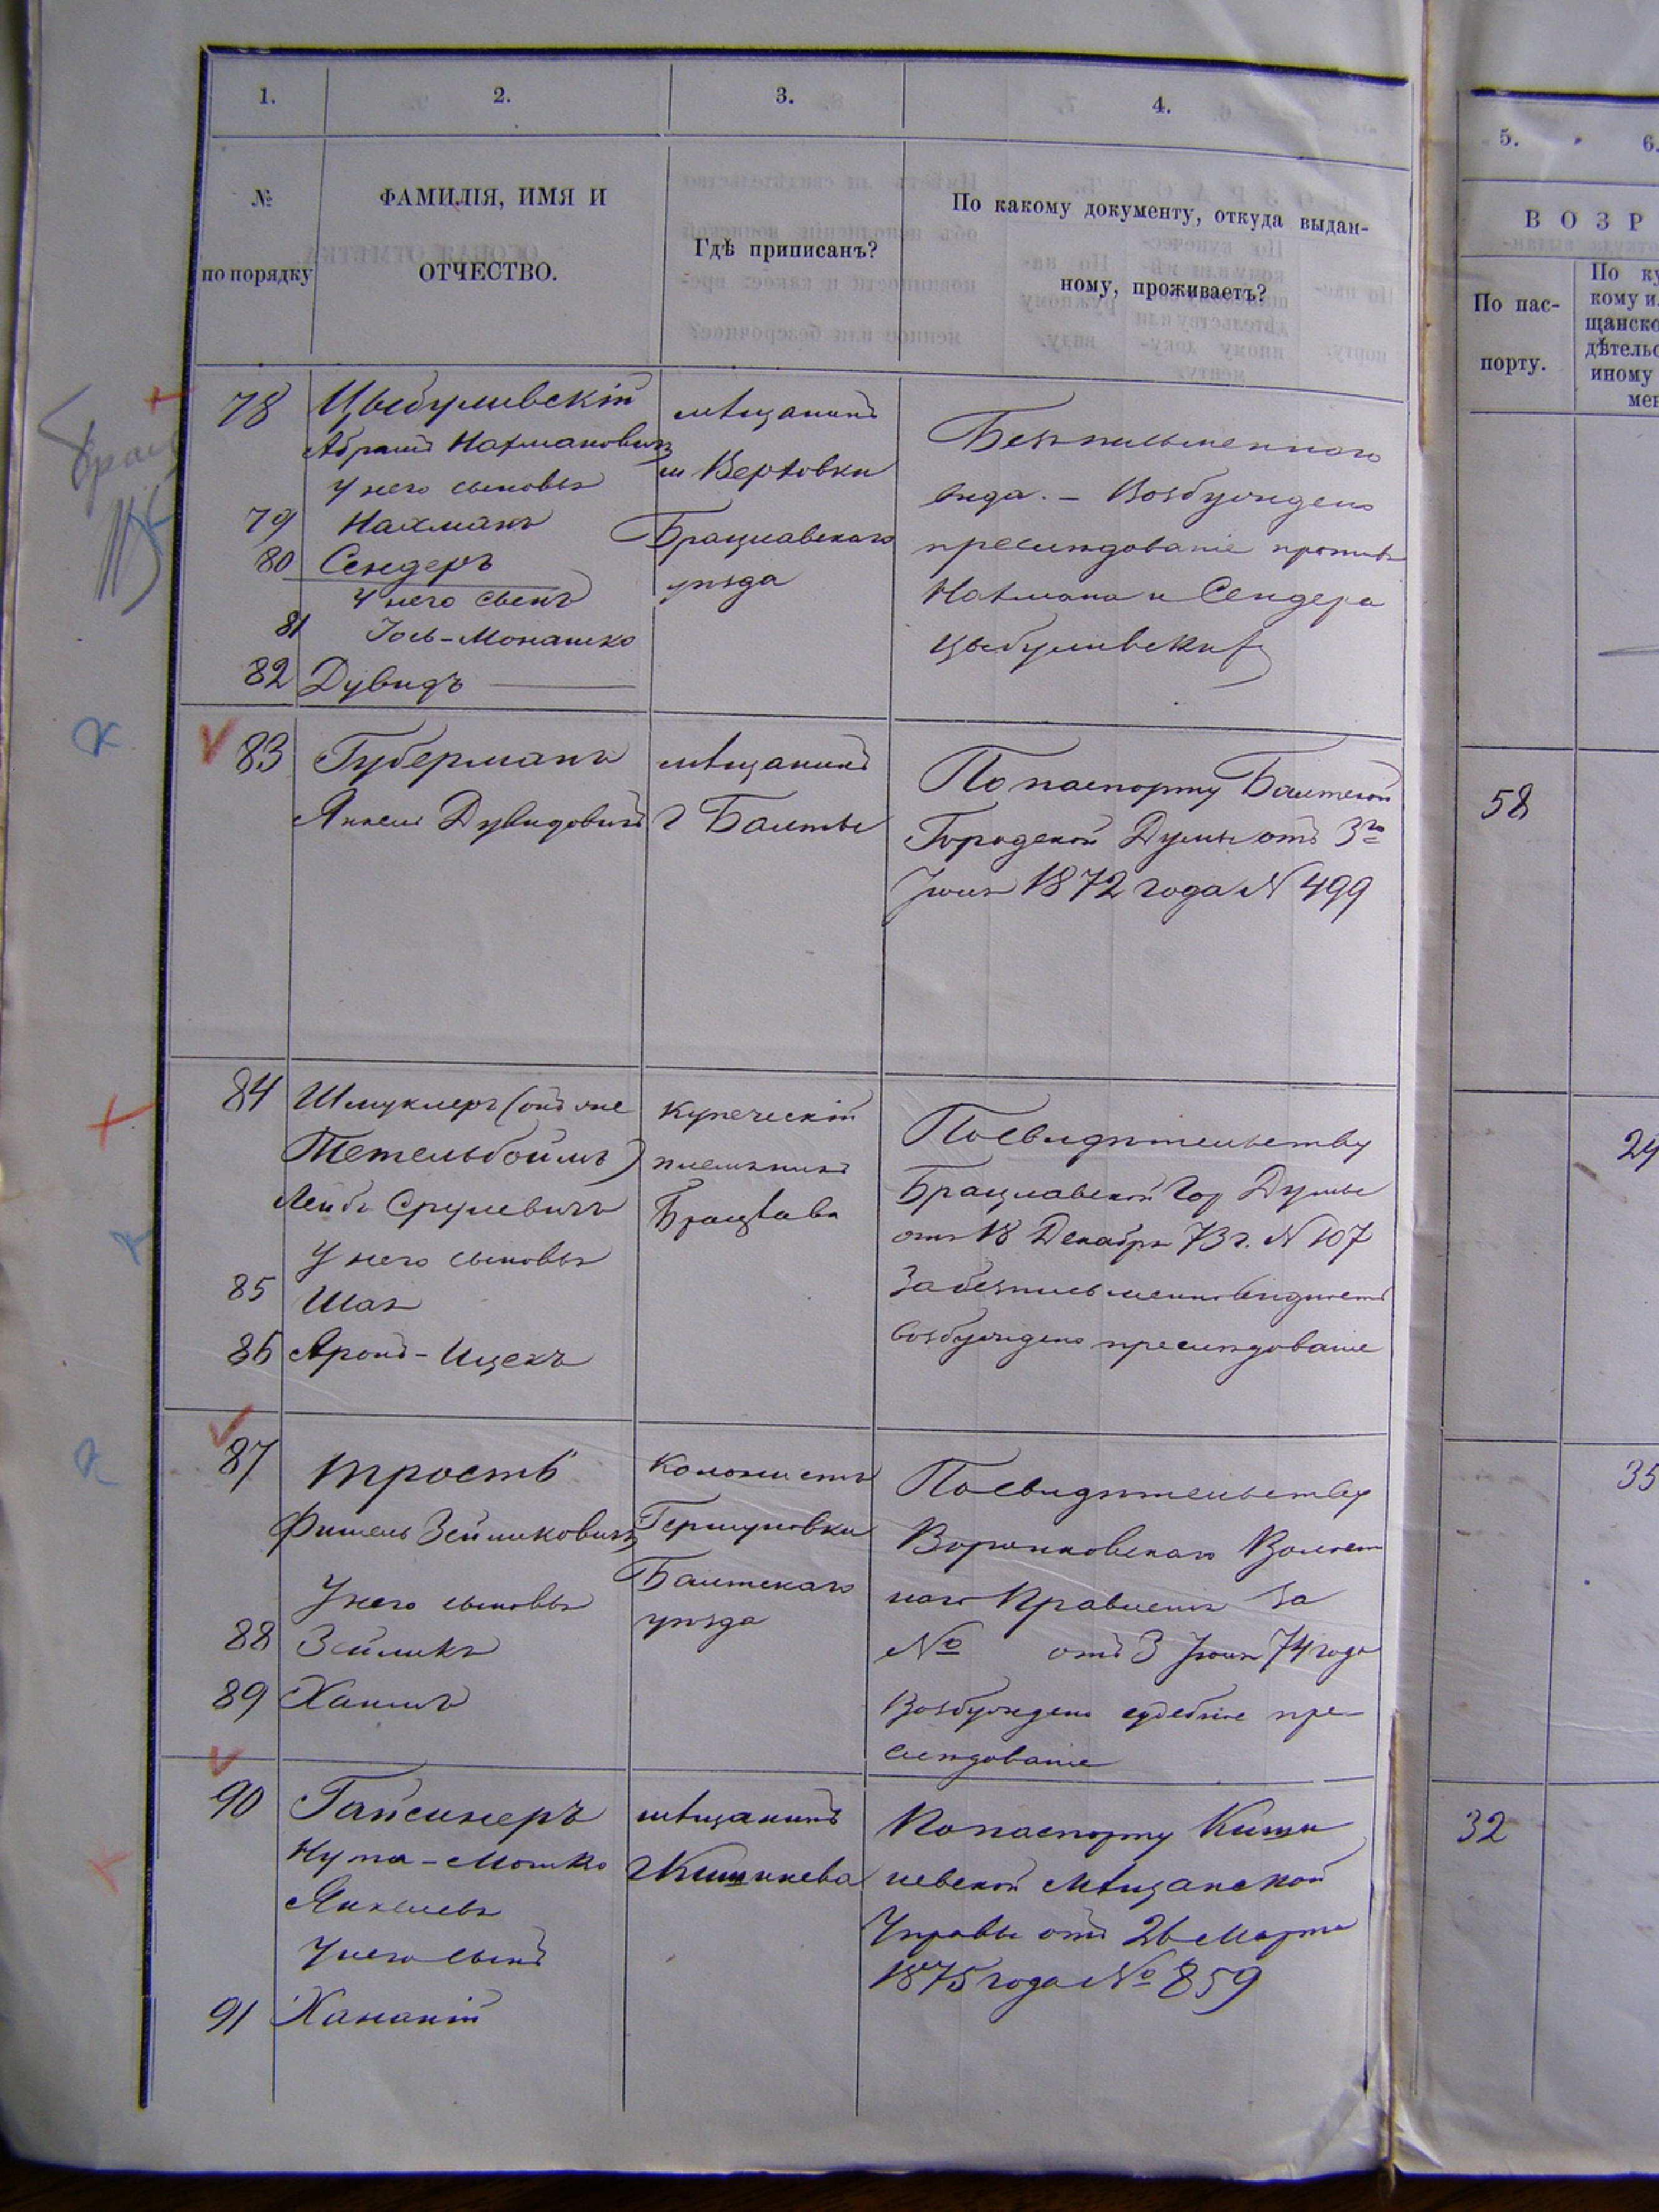 1.
2.
3.
4.
№
по порядку
ФАМИЛІЯ, ИМЯ И
ОТЧЕСТВО.
Гдѣ приписанъ?
По какому документу, откуда выдан-
ному, проживаетъ?
78
Цыбуливскій
Абрамъ Нахмановичъ
У него сыновья
79 Нахманъ
80 Сендеръ
У него сынъ
81 Іось-Монашко
82 Дувидъ
мѣщанинъ
м Верховки
Брацлавскаго
уѣзда
Безписьменнаго
вида. – Возбуждено
преслѣдованіе противъ
Нахмана и Сендера
Цыбуливскихъ
83
Губерманъ
Янкель Дувидовичъ
мѣщанинъ
г Балты
По паспорту Балтской
Городской Думы отъ 3го
Іюня 1872 года № 499
84
Шмуклеръ (онъ же
Тетельбоймъ)
Лейбъ Срулевичъ
У него сыновья
85 Шая
86 Аронъ-Ицекъ
Купеческій
племянникъ
Брацлава
По свидѣтельству
Брацлавской Гор Думы
отъ 18 Декабря 73 г. № 107
За безписьменновидность
возбуждено преслѣдованіе
87
Тростъ
Фишель Зейликовичъ
У него сыновья
88 Зейликъ
89 Хаимъ
Колонистъ
Гершуновки
Балтскаго
уѣзда
По свидѣтельству
Волост
наго Правленія за
№ отъ 3 Іюня 74 года
Возбуждено судебное пре-
слѣдованіе
90
Гайсинеръ
Нута-Мошко
Янкелевъ
У него сынъ
91 Хананій
мѣщанинъ
г Кишинева
По паспорту Киши
невской Мѣщанской
Управы отъ 26 Марта
1875 года № 859
5.
6.
ВОЗР
По пас-
порту.
По ку
кому и
щанско
дѣтельс
иному
мен
58
24
35
32